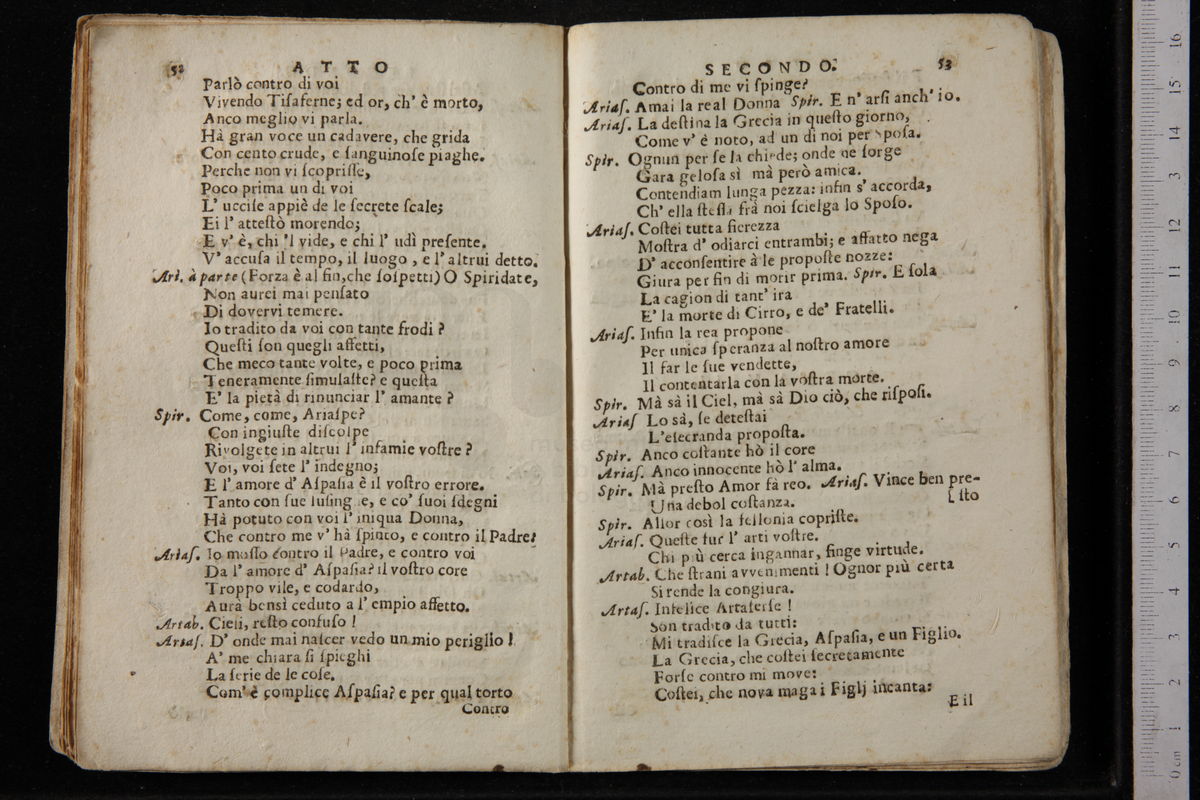 52 ATTO
Parlò contro di voi
Vivendo Tiſaferne; ed or, ch' è morto,
Anco meglio vi parla.
Hà gran voce un cadavere, che grida
Con cento crude, e ſanguinoſe piaghe.
Perche non vi ſcopriſſe,
Poco prima un di voi
L' ucciſe appiè de le ſecrete ſcale;
Ei l' atteſtò morendo;
E v' è, chi 'l vide, e chi l' udì preſente.
V' accuſa il tempo, il luogo , e l' altrui detto.
Ari. à parte (Forza è al fin, che ſoſpetti) O Spiridate,
Non aurei mai penſato
Di dovervi temere.
Io tradito da voi con tante frodi ?
Queſti ſon quegli affetti,
Che meco tante volte, e poco prima
Teneramente ſimulaſte? e queſta
E' la pietà di rinunciar l' amante ?
Spir. Come, come, Ariaſpe?
Con ingiuſte diſcolpe
Rivolgete in altrui l' infamie voſtre ?
Voi, voi ſete l' indegno;
E l' amore d' Aſpaſia è il voſtro errore.
Tanto con ſue luſing e, e co' ſuoi ſdegni
Hà potuto con voi l' iniqua Donna,
Che contro me v' hà ſpinto, e contro il Padre?
Ariaſ. Io moſſo contro il Padre, e contro voi
Da l' amore d' Aſpaſia? il voſtro core
Troppo vile, e codardo,
Aurà bensì ceduto a l' empio affetto.
Artab. Cieli, reſto confuſo !
Artaſ. D' onde mai naſcer vedo un mio periglio !
A' me chiara ſi ſpieghi
La ſerie de le coſe.
Com' è complice Aſpaſia? e per qual torto
Contro
SECONDO. 53
Contro di me vi ſpinge?
Ariaſ. Amai la real Donna Spir. E n' arſi anch' io.
Ariaſ. La deſtina la Grecia in queſto giorno,
Come v' è noto, ad un di noi per Spoſa.
Spir. Ognun per ſe la chiede; onde ne ſorge
Gara geloſa sì mà però amica.
Contendiam lunga pezza: infin s' accorda,
Ch' ella ſteſſa frà noi ſcielga lo Spoſo.
Ariaſ. Coſtei tutta fierezza
Moſtra d' odiarci entrambi; e affatto nega
D' acconſentire à le propoſte nozze:
Giura per fin di morir prima. Spir. E ſola
La cagion di tant' ira
E' la morte di Cirro, e de' Fratelli.
Ariaſ. Infin la rea propone
Per unica ſperanza al noſtro amore
Il far le ſue vendette,
Il contentarla con la voſtra morte.
Spir. Mà sà il Ciel, mà sà Dio ciò, che riſpoſi.
Ariaſ Lo sà, ſe deteſtai
L'eſecranda propoſta.
Spir. Anco coſtante hò il core
Ariaſ. Anco innocente hò l' alma.
Spir. Mà preſto Amor fà reo. Ariaſ. Vince ben pre-
[ ſto
Una debol coſtanza.
Spir. Allor così la fellonia copriſte.
Ariaſ. Queſte fur l' arti voſtre.
Chi più cerca ingannar, finge virtude.
Artab. Che ſtrani avvenimenti ! Ognor più certa
Si rende la congiura.
Artaſ. Infelice Artaſerſe !
Son tradito da tutti:
Mi tradiſce la Grecia, Aſpaſia, e un Figlio.
La Grecia, che coſtei ſecretamente
Forſe contro mi move:
Coſtei, che nova maga i Figlj incanta:
E il
0 cm 1 2 3 4 5 6 7 8 9 10 11 12 13 14 15 16